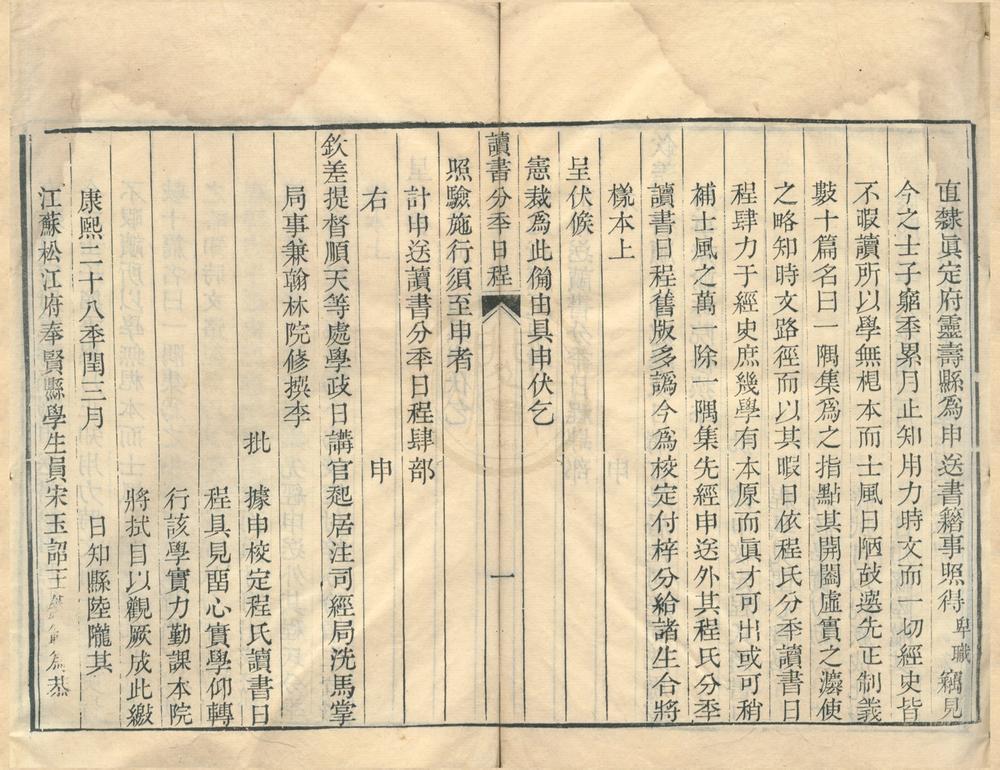 直隸眞定府靈壽縣爲申送書籍事照得卑職竊見
今之士子窮秊累月止知用力時文而一切經史皆
不暇讀所以學無根本而士風日陋故選先正制義
數十篇名曰一隅集爲之指點其開闔虛實之灋使
之略知時文路徑而以其暇日依程氏分秊讀書日
程肆力于經史庶幾學有本原而眞才可出或可稍
補士風之萬一除一隅集先經申送外其程氏分秊
讀書日程舊版多譌今爲校定付梓分給諸生合將
樣本上
呈伏候
憲裁爲此備由具申伏乞
讀書分秊日程 一
照驗施行須至申者
計申送讀書分秊日程肆部
右 申
欽差提督順天等處學政日講官起居注司經局洗馬掌
局事兼翰林院修撰李
批 據申校定程氏讀書日
程具見畱心實學仰轉
行該學實力勤課本院
將拭目以觀厥成此繳
康熙二十八秊閏三月 日知縣陸隴其
江蘇松江府奉賢縣學生員宋玉詔王